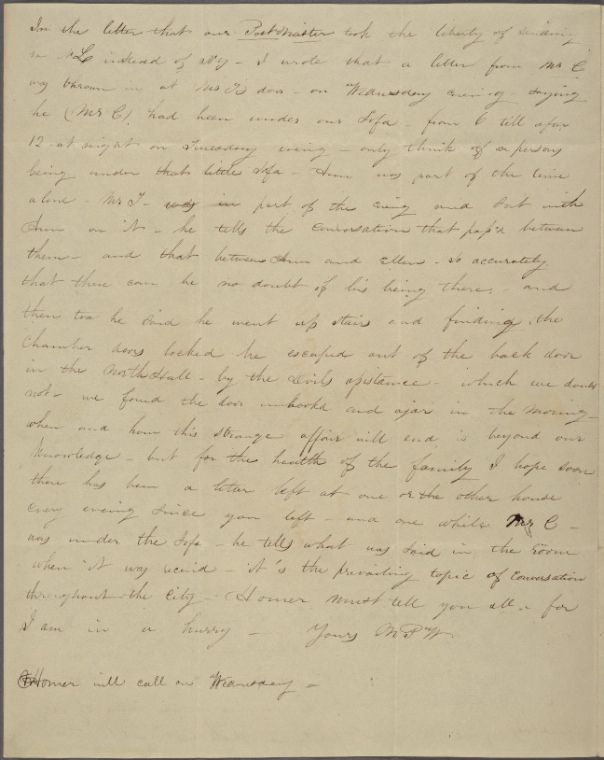 In the letter that our Postmaster took the liberty of sending
to instead of NY - I wrote that a letter from Mr C
was thrown in at Mr T's door - on Wednesday evening - saying
he (Mr C) had been under our Sofa - from 6 till after
12 at night on Tuesday evening - only think of a persons
being under that little Sofa - Ann was part of the time
alone - Mr T - was in part of the evening and sat with
Ann on it - he tells the conversation that pass'd between
them - and that between Ann and Ellen - so accurately
that there can be no doubt of his being there - and
then too he said he went up stairs and finding the
Chamber doors locked he escaped out of the back door
in the North Hall - by the Devils assistance - which we doubt
not - we found the door unhook'd and ajar in the morning -
when and how this strange affair will end is beyond our
knowledge - but for the health of the family I hope soon
there has been a letter left at one or the other house
every evening since you left - and one while Mr C -
was under the Sofa - he tells what was said in the room
when it was receiv'd - it's the prevailing topic of conversation
throughout the City - Homer must tell you all - for
I am in a hurry - Yours M P W
Homer will call on Wednesday -